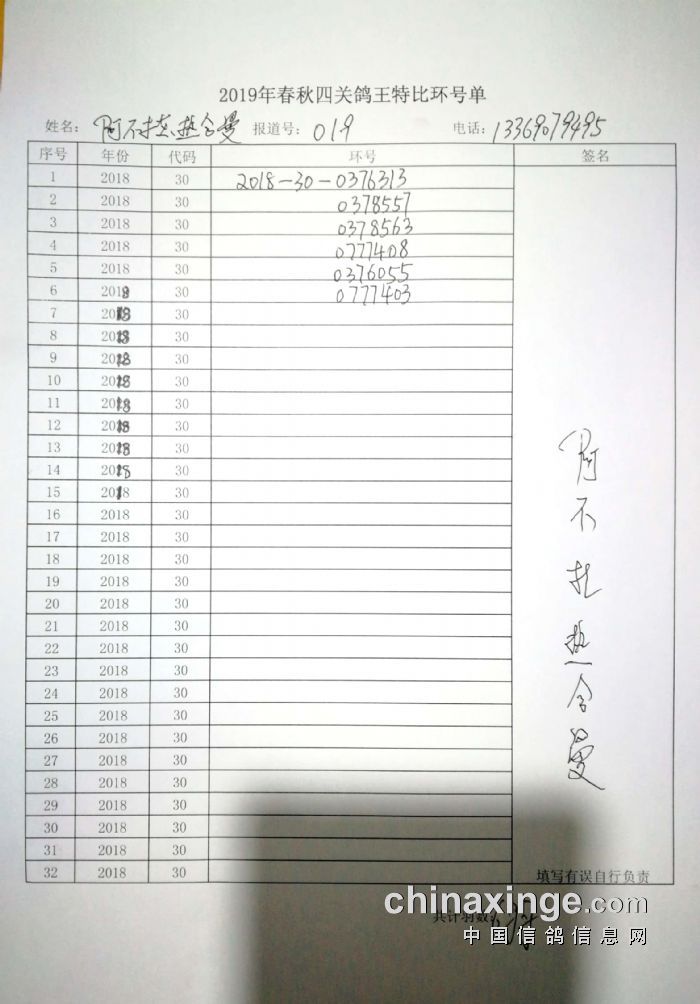 2019年春秋四关鸽王特比环号单
姓名：阿不扎热合曼 报道号：019 电话：13369079495
序号 年份 代码 环号 签名
1 2018 30 2018-30-0376313
2 2018 30 0378557
3 2018 30 0378563
4 2018 30 0777408
5 2018 30 0376055
6 2018 30 0777403
7 2018 30
8 2018 30
9 2018 30
10 2018 30
11 2018 30
12 2018 30
13 2018 30
14 2018 30
15 2018 30
16 2018 30
17 2018 30
18 2018 30
19 2018 30
20 2018 30
21 2018 30
22 2018 30
23 2018 30
24 2018 30
25 2018 30
26 2018 30
27 2018 30
28 2018 30
29 2018 30
30 2018 30
31 2018 30
32 2018 30
阿不扎热合曼
填写有误自行负责
共计羽数
chinaxinge.com
中国信鸽信息网